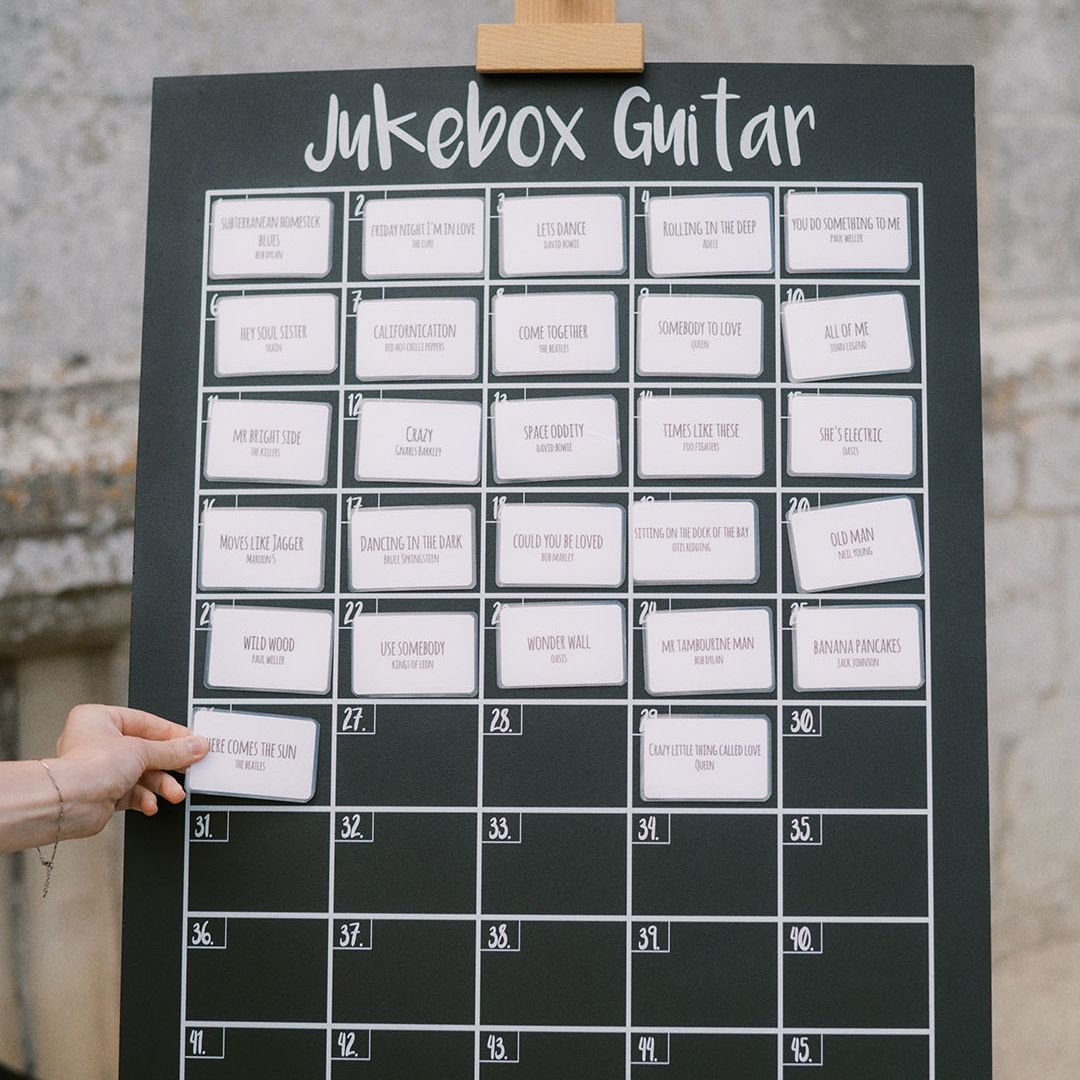 Jukebox Guitar
SUBTERRANEAN HOMESICK
BLUES
BOB DYLAN
2
FRIDAY NIGHT I'M IN LOVE
THE CURE
3
LETS DANCE
DAVID BOWIE
4
ROLLING IN THE DEEP
ADELE
5
YOU DO SOMETHING TO ME
PAUL WELLER
6
HEY SOUL SISTER
TRAIN
7
CALIFORNICATION
RED HOT CHILLI PEPPERS
8
COME TOGETHER
THE BEATLES
9
SOMEBODY TO LOVE
QUEEN
10
ALL OF ME
JOHN LEGEND
11
MR BRIGHT SIDE
THE KILLERS
12
CRAZY
GNARLS BARKLEY
13
SPACE ODDITY
DAVID BOWIE
14
TIMES LIKE THESE
FOO FIGHTERS
15
SHE'S ELECTRIC
OASIS
16
MOVES LIKE JAGGER
MAROON 5
17
DANCING IN THE DARK
BRUCE SPRINGSTEEN
18
COULD YOU BE LOVED
BOB MARLEY
19
SITTING ON THE DOCK OF THE BAY
OTIS REDDING
20
OLD MAN
NEIL YOUNG
21
WILD WOOD
PAUL WELLER
22
USE SOMEBODY
KINGS OF LEON
23
WONDER WALL
OASIS
24
MR TAMBOURINE MAN
BOB DYLAN
25
BANANA PANCAKES
JACK JOHNSON
HERE COMES THE SUN
THE BEATLES
27.
28.
29
CRAZY LITTLE THING CALLED LOVE
QUEEN
30.
31.
32.
33.
34.
35.
36.
37.
38.
39.
40.
41.
42.
43.
44.
45.